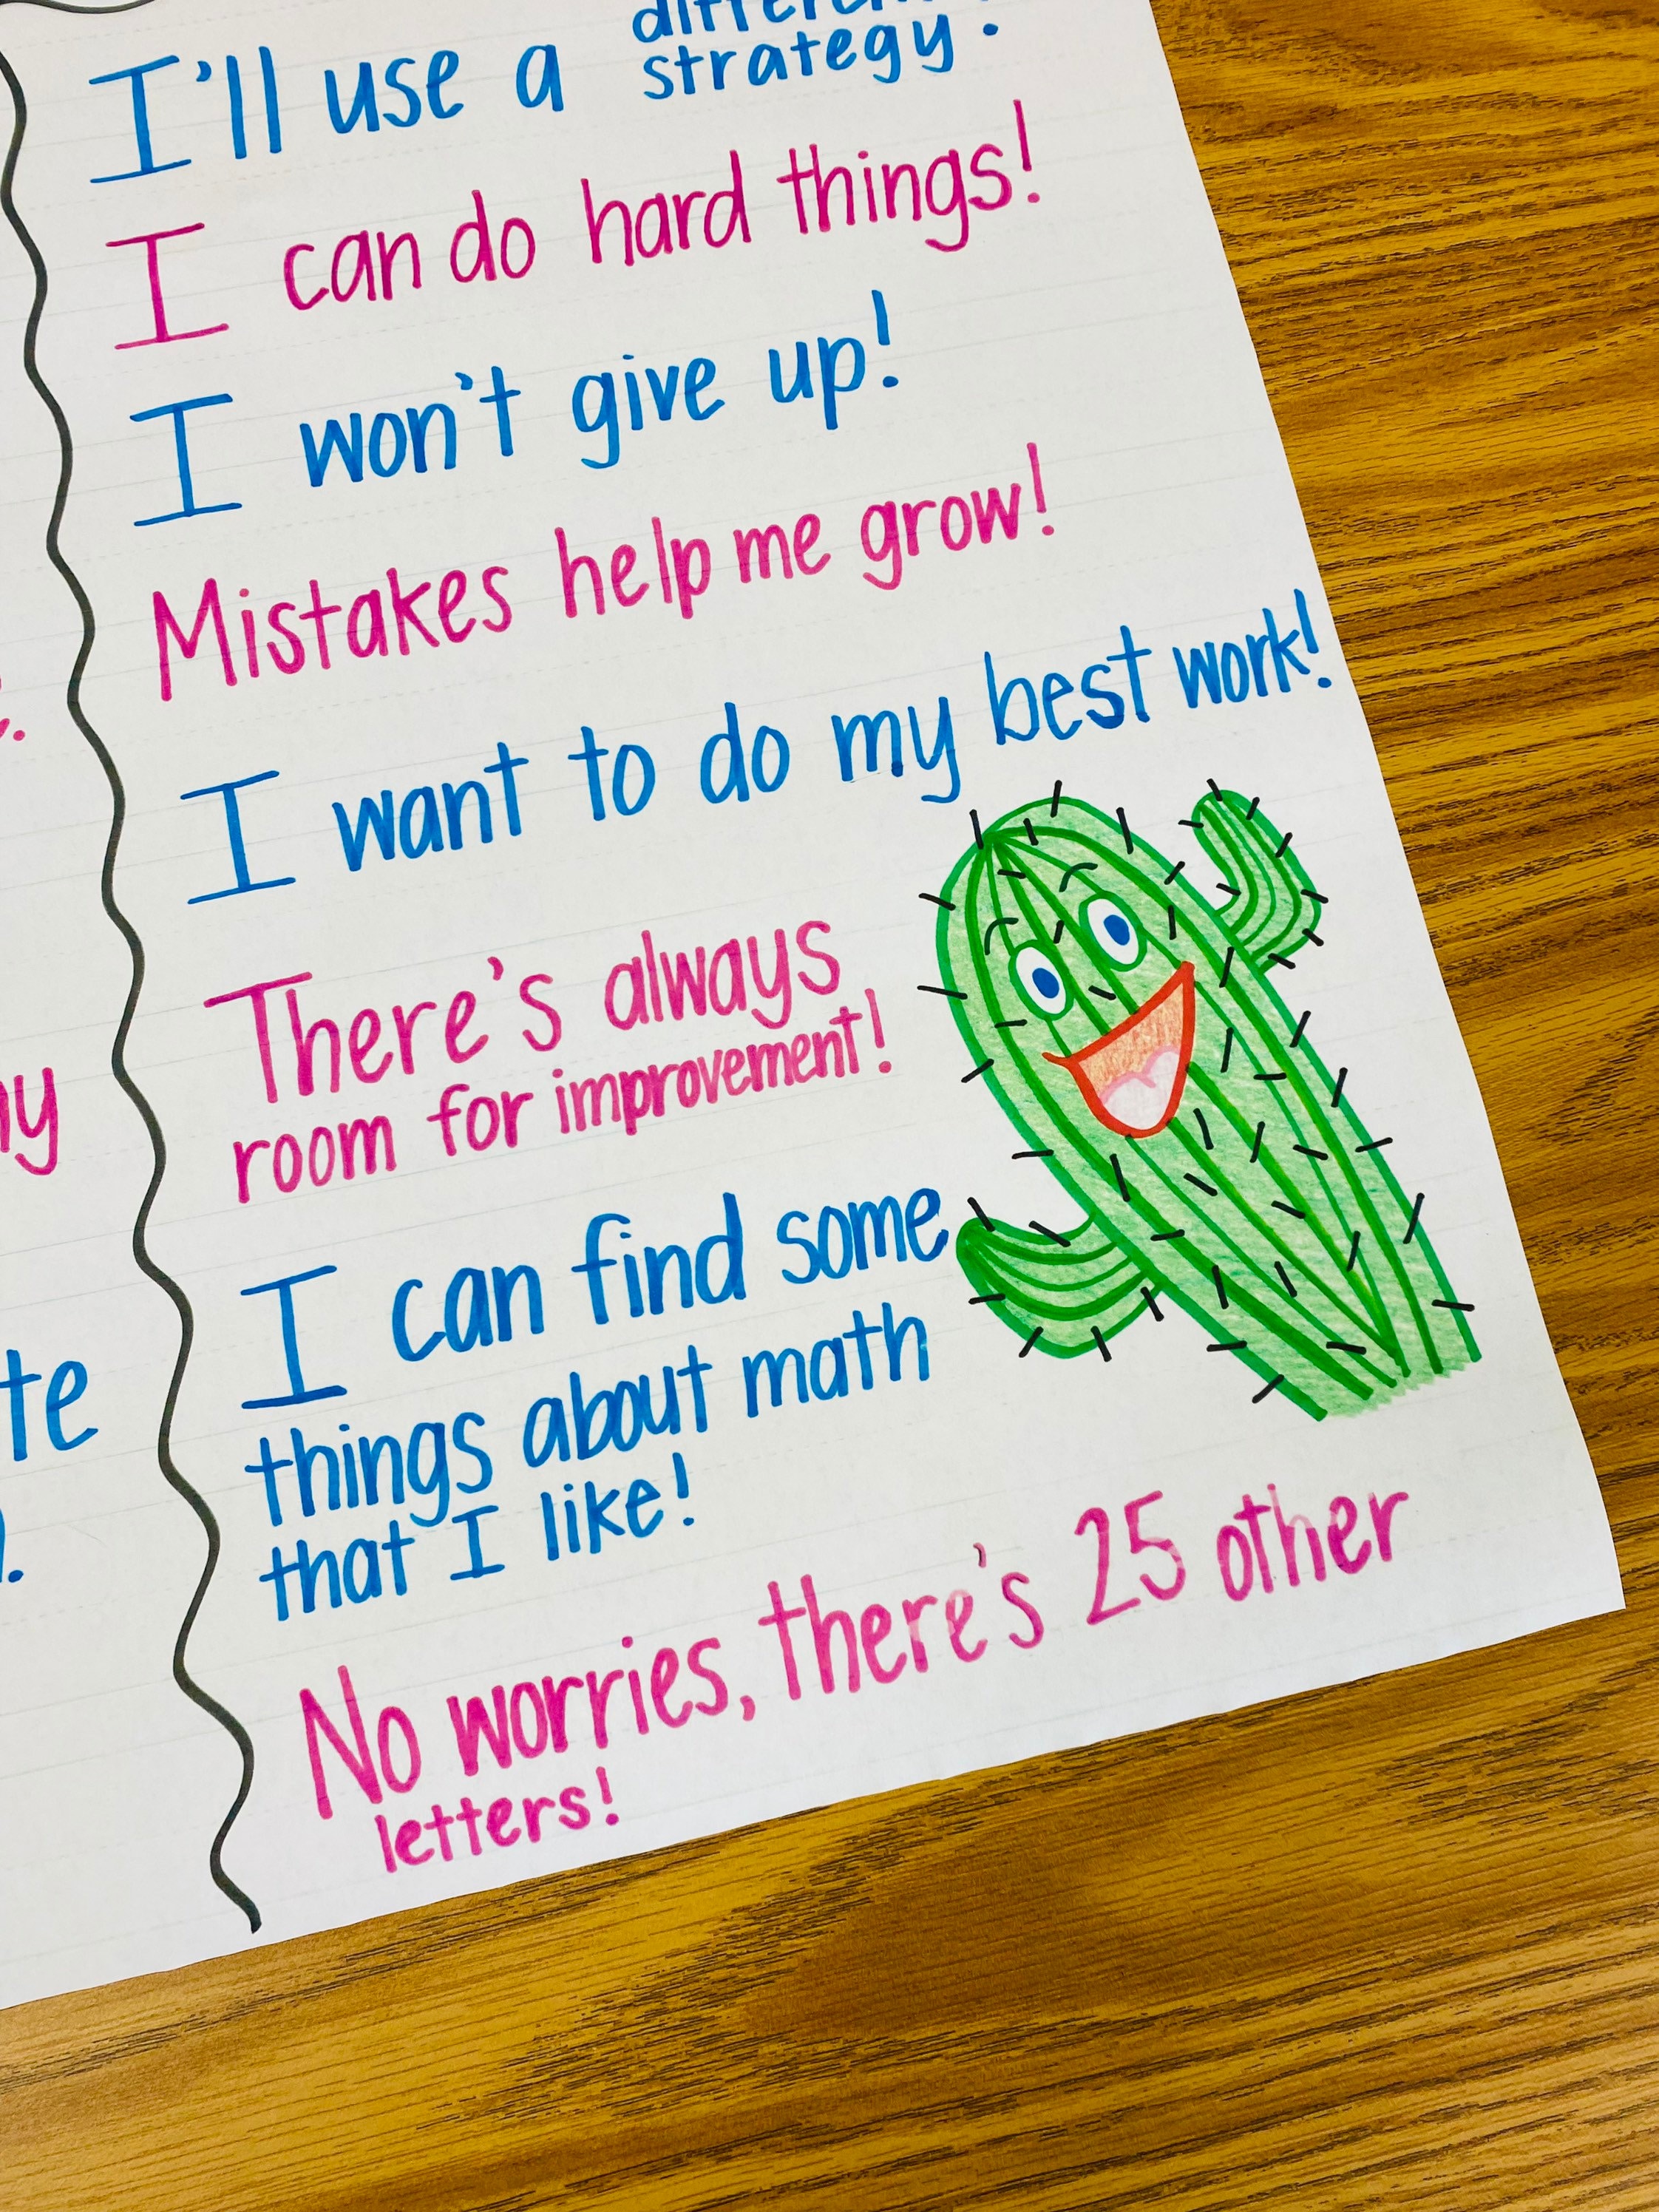 I'll use a different
strategy.
I can do hard things!
I won't give up!
Mistakes help me grow!
I want to do my best work!
There's always
room for improvement!
I can find some
things about math
that I like!
No worries, there's 25 other
letters!